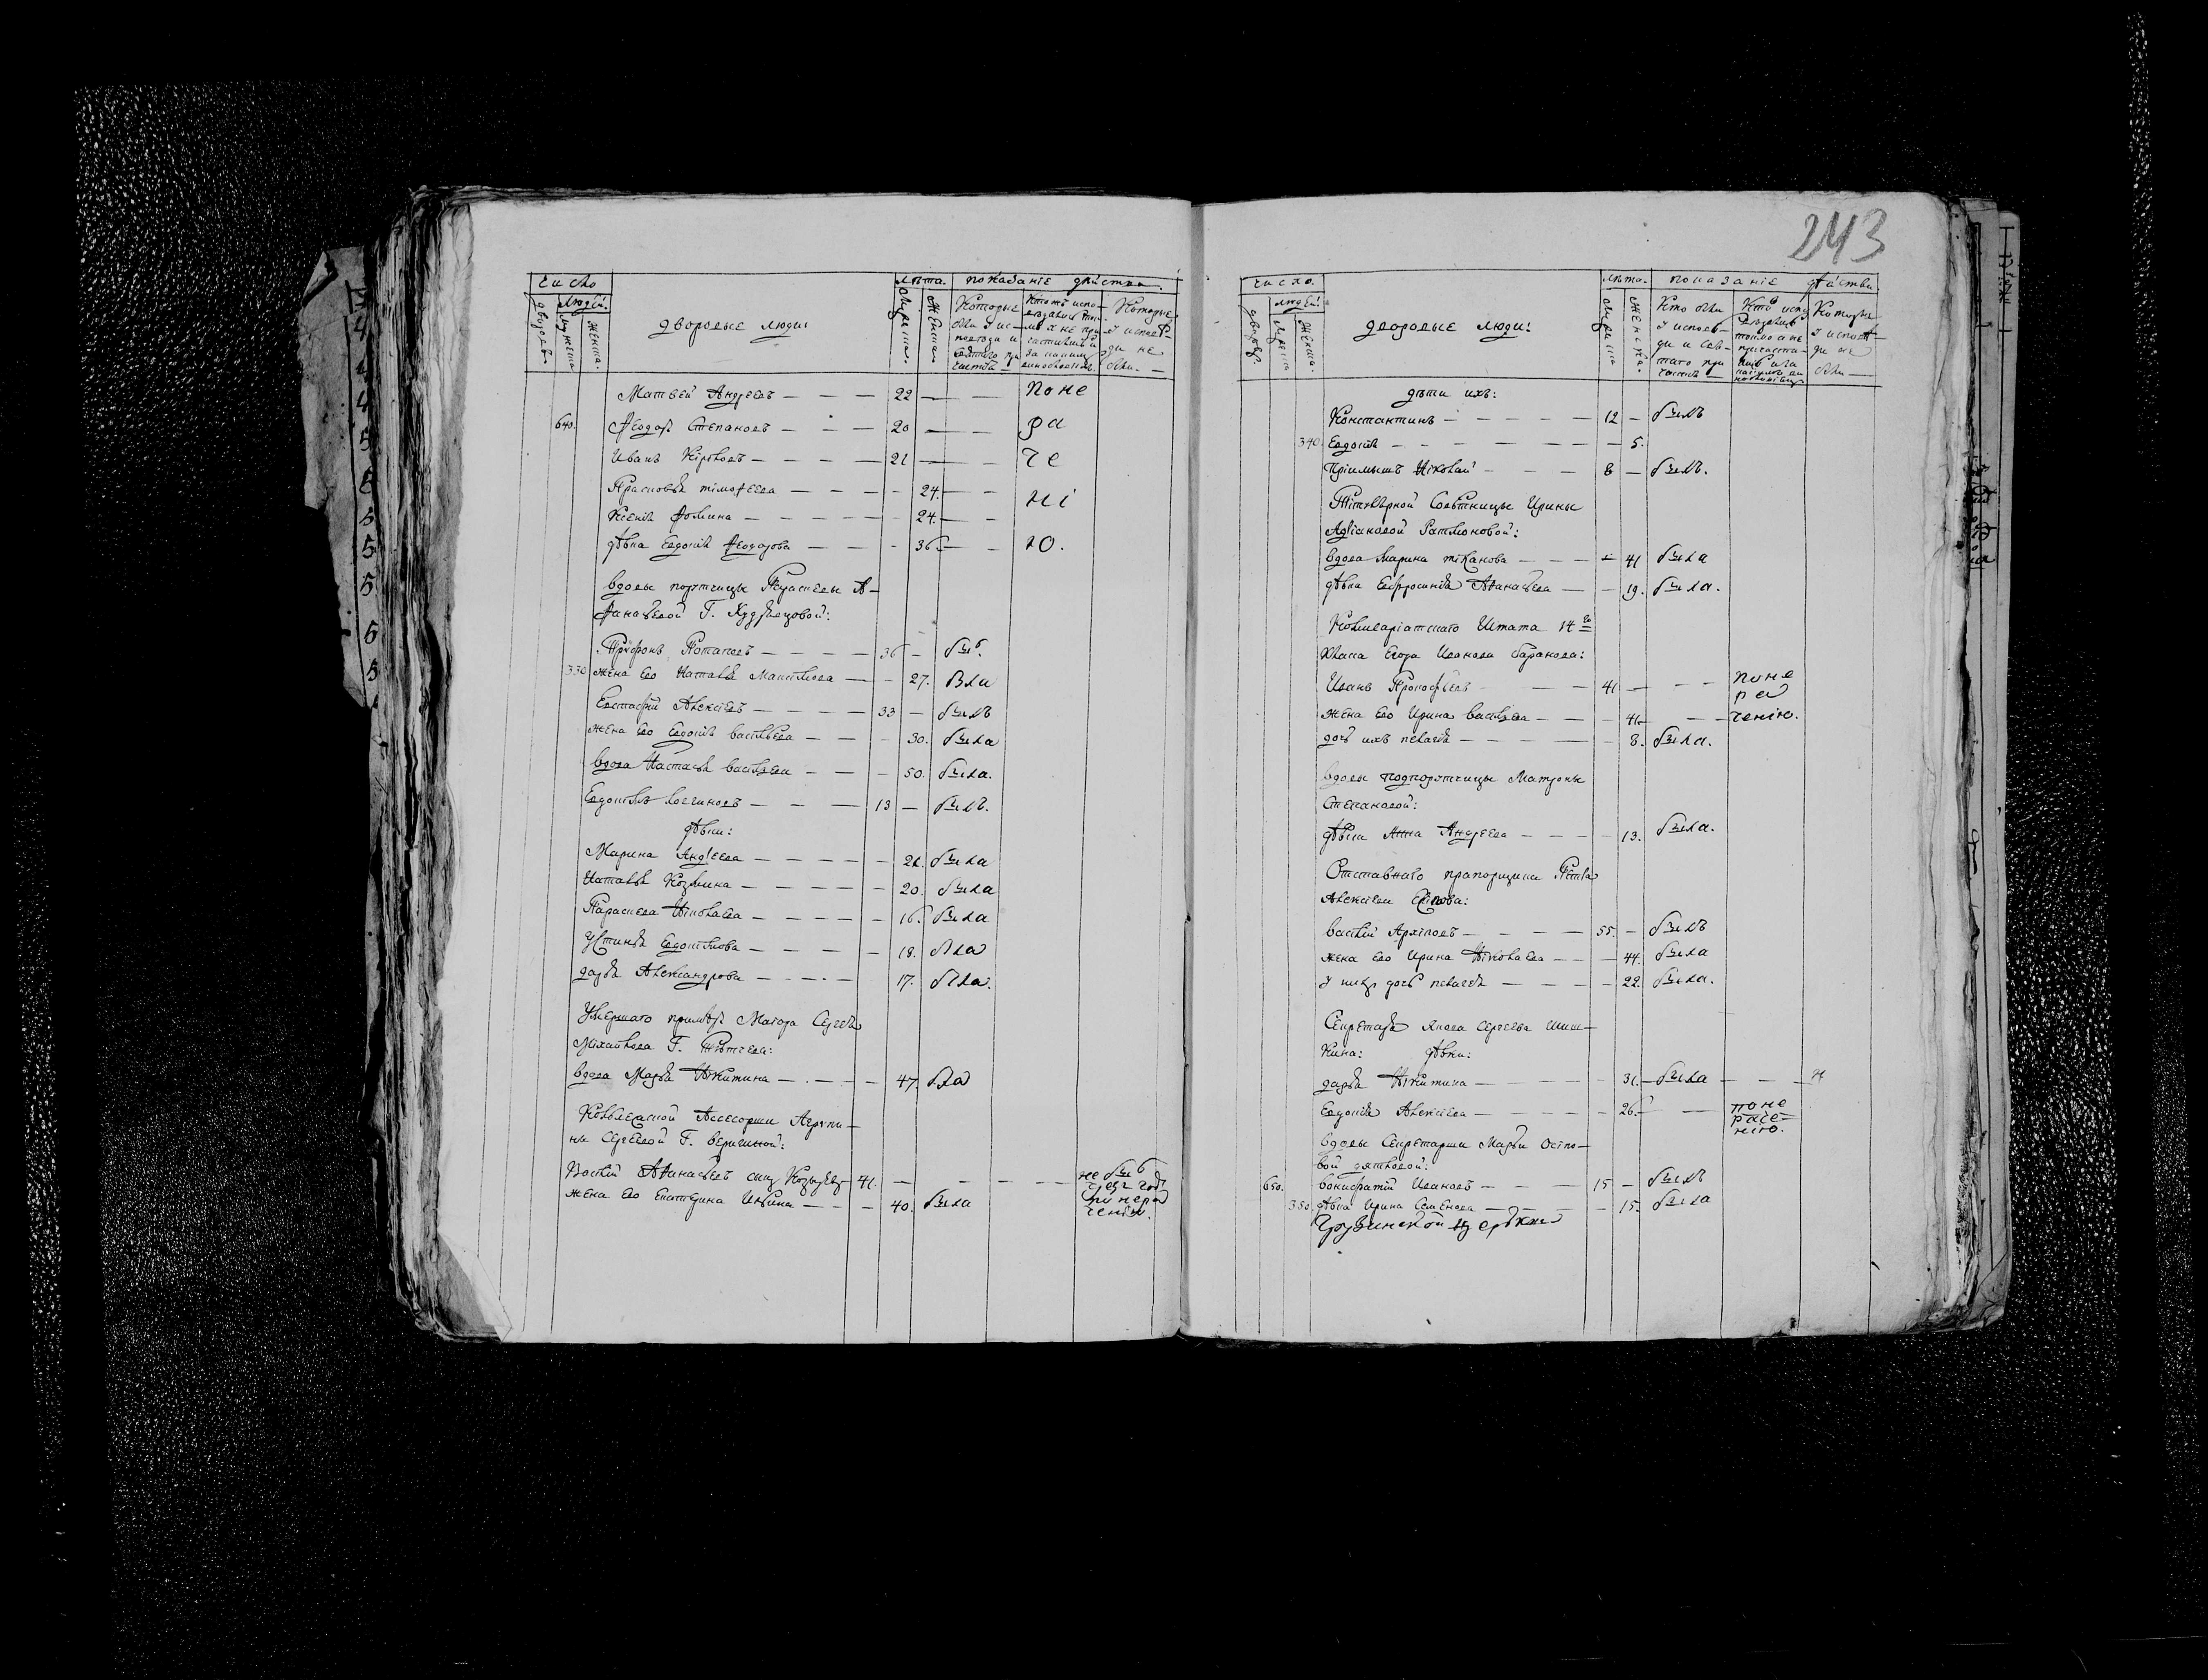 число
людей
дворовъ
мужеска
женска
дворовые люди:
лѣта.
мужеска.
женска.
показаніе дѣйства.
Которые
были у ис-
повѣди и
святаго при
частія
кто исповѣдался
Которые
у исповѣ-
ди не
были. —
Матвей Андреевъ — — — 22 — — поне
640. Ѳеодоръ Степановъ — — — 20 — — ра
Иванъ Кириловъ — — — 21 — — че
Прасковья тімоѳеева — — — 24. — — ні
Ксенія Ѳомина — — — 24. — —
дѣвка Евдокія Ѳеодорова — — — 36 — — ю.
вдовы порутчицы Параскевы А-
ѳанасьевой Г.
Триѳонъ Потаповъ — — — 36 — былъ.
330 жена ево Наталья — — 27. была
Евстафій Алексѣевъ — — — 33 — былъ
жена ево Евдокія васильева — — — 30. была
вдова Настасья васильева — — — 50. была.
Евдокимъ Логгиновъ — — — 13 — былъ.
дѣвки:
Марина Андреева — — — 21. была
Наталья Козмина — — — 20. была
Параскева Николаева — — — 16. была
Устинья Евдокимова — — — 18. была
дарья Александрова — — — 17. была.
Умершаго примьеръ Маіора Сергея
Міхайлова Г. Тютчева:
вдова Марья Никитина — — — 47. была
Коллежской Ассесорши Агрипи-
ны Сергеевой Г.
Васілій Аѳанасьевъ сынъ 41. — — — — не былъ
чрезъ годъ
по нера
ченію.
жена ево Екатерина Ильина — — — 40. была
243
число.
людей
дворовъ.
мужеска
женска.
дворовые люди:
лѣта.
мужеска
женска.
показаніе дѣйства.
Кто были
у исповѣ-
ди и свя-
таго при
частія
Которые
у исповѣ-
ди не
были —
дѣти ихъ:
Константинъ — — — 12 — былъ
340. Евдокія — — — 5.
Пріимышъ Николай — — — 8 — былъ.
Титулярной Совѣтницы Ирины
Адріановой Ратмоновой:
вдова Марина — — — 41 была
дѣвка Евфросинья Аѳанасьева — — 19. была.
Комисаріатскаго Штата 14го
класа Егора Иванова Баранова:
Иванъ Прокофьевъ — — 41 — — — поне
ра
жена ево Ирина васильева — — — 41 — — — ченію.
дочь ихъ пелагея — — — 8. была.
вдовы подпорутчицы Матроны
Степановой:
дѣвка Анна Андреева — — — 13. была.
Отставнаго прапорщика Петра
Алексѣева
василій Архиповъ — — — 55. — былъ
жена ево Ирина Николаева — — — 44. была
у нихъ дочь пелагея — — — 22. была.
Секретаря Якова Сергеева Шиш-
кина: дѣвки:
дарья Никитина — — — 31. — была — — —
Евдокія Алексѣева — — — 26. — — поне
раче-
нію.
вдовы Секретарши Марьи Осипо-
вой
650. вонифатій Ивановъ — — — 15 — былъ
350. дѣвка Ирина Семенова — — — 15. была
Грузинской церкви